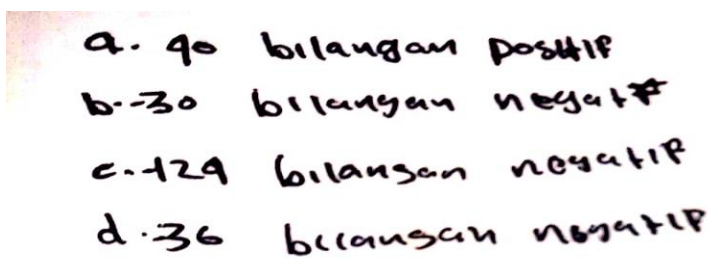 a. 90 bilangan positif
b. -30 bilangan negatif
c. -129 bilangan negatif
d. -36 bilangan negatif